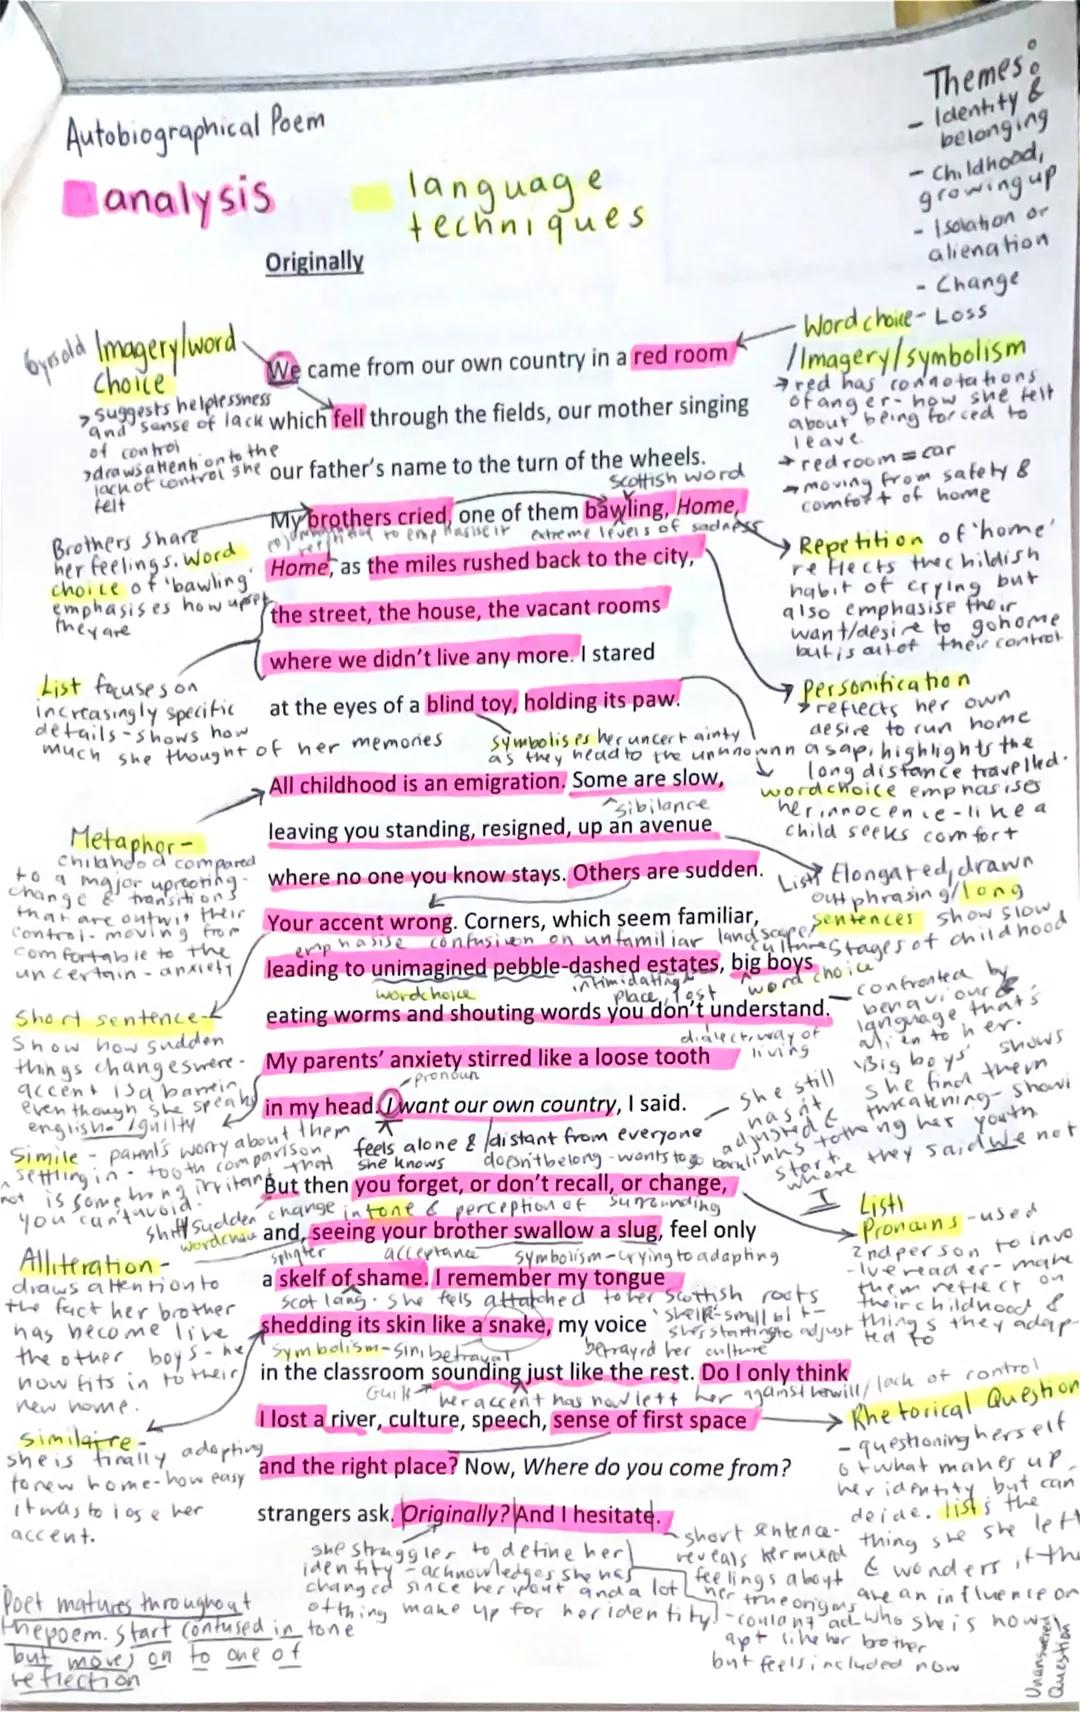 Autobiographical Poem
analysis
language
techniques
Themes:
- Identity &
belonging
- Childhood,
growing up
- Isolation or
alienation
- Change
Originally
6yrsold Imagery/word
choice
> suggests helplessness
and sense of lack
of control
> draws attention to the
lack of control she
felt
Word choice - Loss
/Imagery/symbolism
→ red has connotations
of anger - how she felt
about being forced to
leave
→ red room = car
→ moving from safety &
comfort of home
We came from our own country in a red room
which fell through the fields, our mother singing
our father's name to the turn of the wheels.
Scottish word
My brothers cried, one of them bawling, Home,
to emphasise it extreme levels of sadness
Home, as the miles rushed back to the city,
the street, the house, the vacant rooms
where we didn't live any more. I stared
at the eyes of a blind toy, holding its paw.
symbolises her uncertainty
as they head to the unknown
Brothers share
her feelings. Word
choice of 'bawling'
emphasises how upset
they are
List focuses on
increasingly specific
details - shows how
much she thought of her memories
Repetition of 'home'
reflects the childish
habit of crying but
also emphasise their
want/desire to go home
but is out of their control
Personification
> reflects her own
desire to run home
asap, highlights the
long distance travelled.
word choice emphasises
her innocence - like a
child seeks comfort
All childhood is an emigration. Some are slow,
sibilance
leaving you standing, resigned, up an avenue
where no one you know stays. Others are sudden.
Your accent wrong. Corners, which seem familiar,
emphasise confusion on unfamiliar landscape/
culture
leading to unimagined pebble-dashed estates, big boys
word choice intimidating
place, lost word choice
eating worms and shouting words you don't understand.
dialect, way of
living
My parents' anxiety stirred like a loose tooth
pronoun
in my head. I want our own country, I said.
feels alone & distant from everyone
she knows doesn't belong - wants to go back
Metaphor -
childhood compared
to a major uprooting -
change & transitions
that are outwit their
control - moving from
comfortable to the
uncertain - anxiety
Short sentence -
show how sudden
things changes were -
accent is a barrier
even though she speaks
english
Simile - parents worry about them
settling in - tooth comparison
is something irritant that
you can't avoid.
List/ Elongated, drawn
out phrasing/long
sentences show slow
stages of childhood
confronted by
behaviour &
language that's
alien to her.
'Big boys' shows
she find them
threatening - showing
her youth
she still
hasn't
adjusted &
links to the
start
where they said We not
I
But then you forget, or don't recall, or change,
shift/sudden change in tone & perception of surrounding
and, seeing your brother swallow a slug, feel only
word choice splinter acceptance symbolism - crying to adapting
a skelf of shame. I remember my tongue
Scot lang. She fels attatched to her Scottish roots
shedding its skin like a snake, my voice
'skelf' - small bit -
she starting to adjust
Symbolism - sin, betrayal betrayed her culture
in the classroom sounding just like the rest. Do I only think
Guilt her accent has now left her against her will/lack of control
I lost a river, culture, speech, sense of first space
and the right place? Now, Where do you come from?
strangers ask. Originally? And I hesitate.
Alliteration -
draws attention to
the fact her brother
has become like
the other boys - he
now fits in to their
new home.
she is finally adapting
to new home - how easy
it was to lose her
accent.
List/
Pronouns - used
2nd person to invo
-lve reader - make
them reflect on
their childhood &
things they adap-
ted to
Rhetorical Question
- questioning herself
of what makes up
her identity but can
decide. lists the
thing she she left
& wonders if the
are an influence on
who she is now
she struggles to define her
identity - acknowledges she has
changed since her youth and a lot
of thing make up for her identity
short sentence -
reveals her mixed
feelings about
her true origins
- couldn't ad
apt like her brother
but feels included now
Unanswered
Question
Poet matures throughout
the poem. Start confused in tone
but moves on to one of
reflection